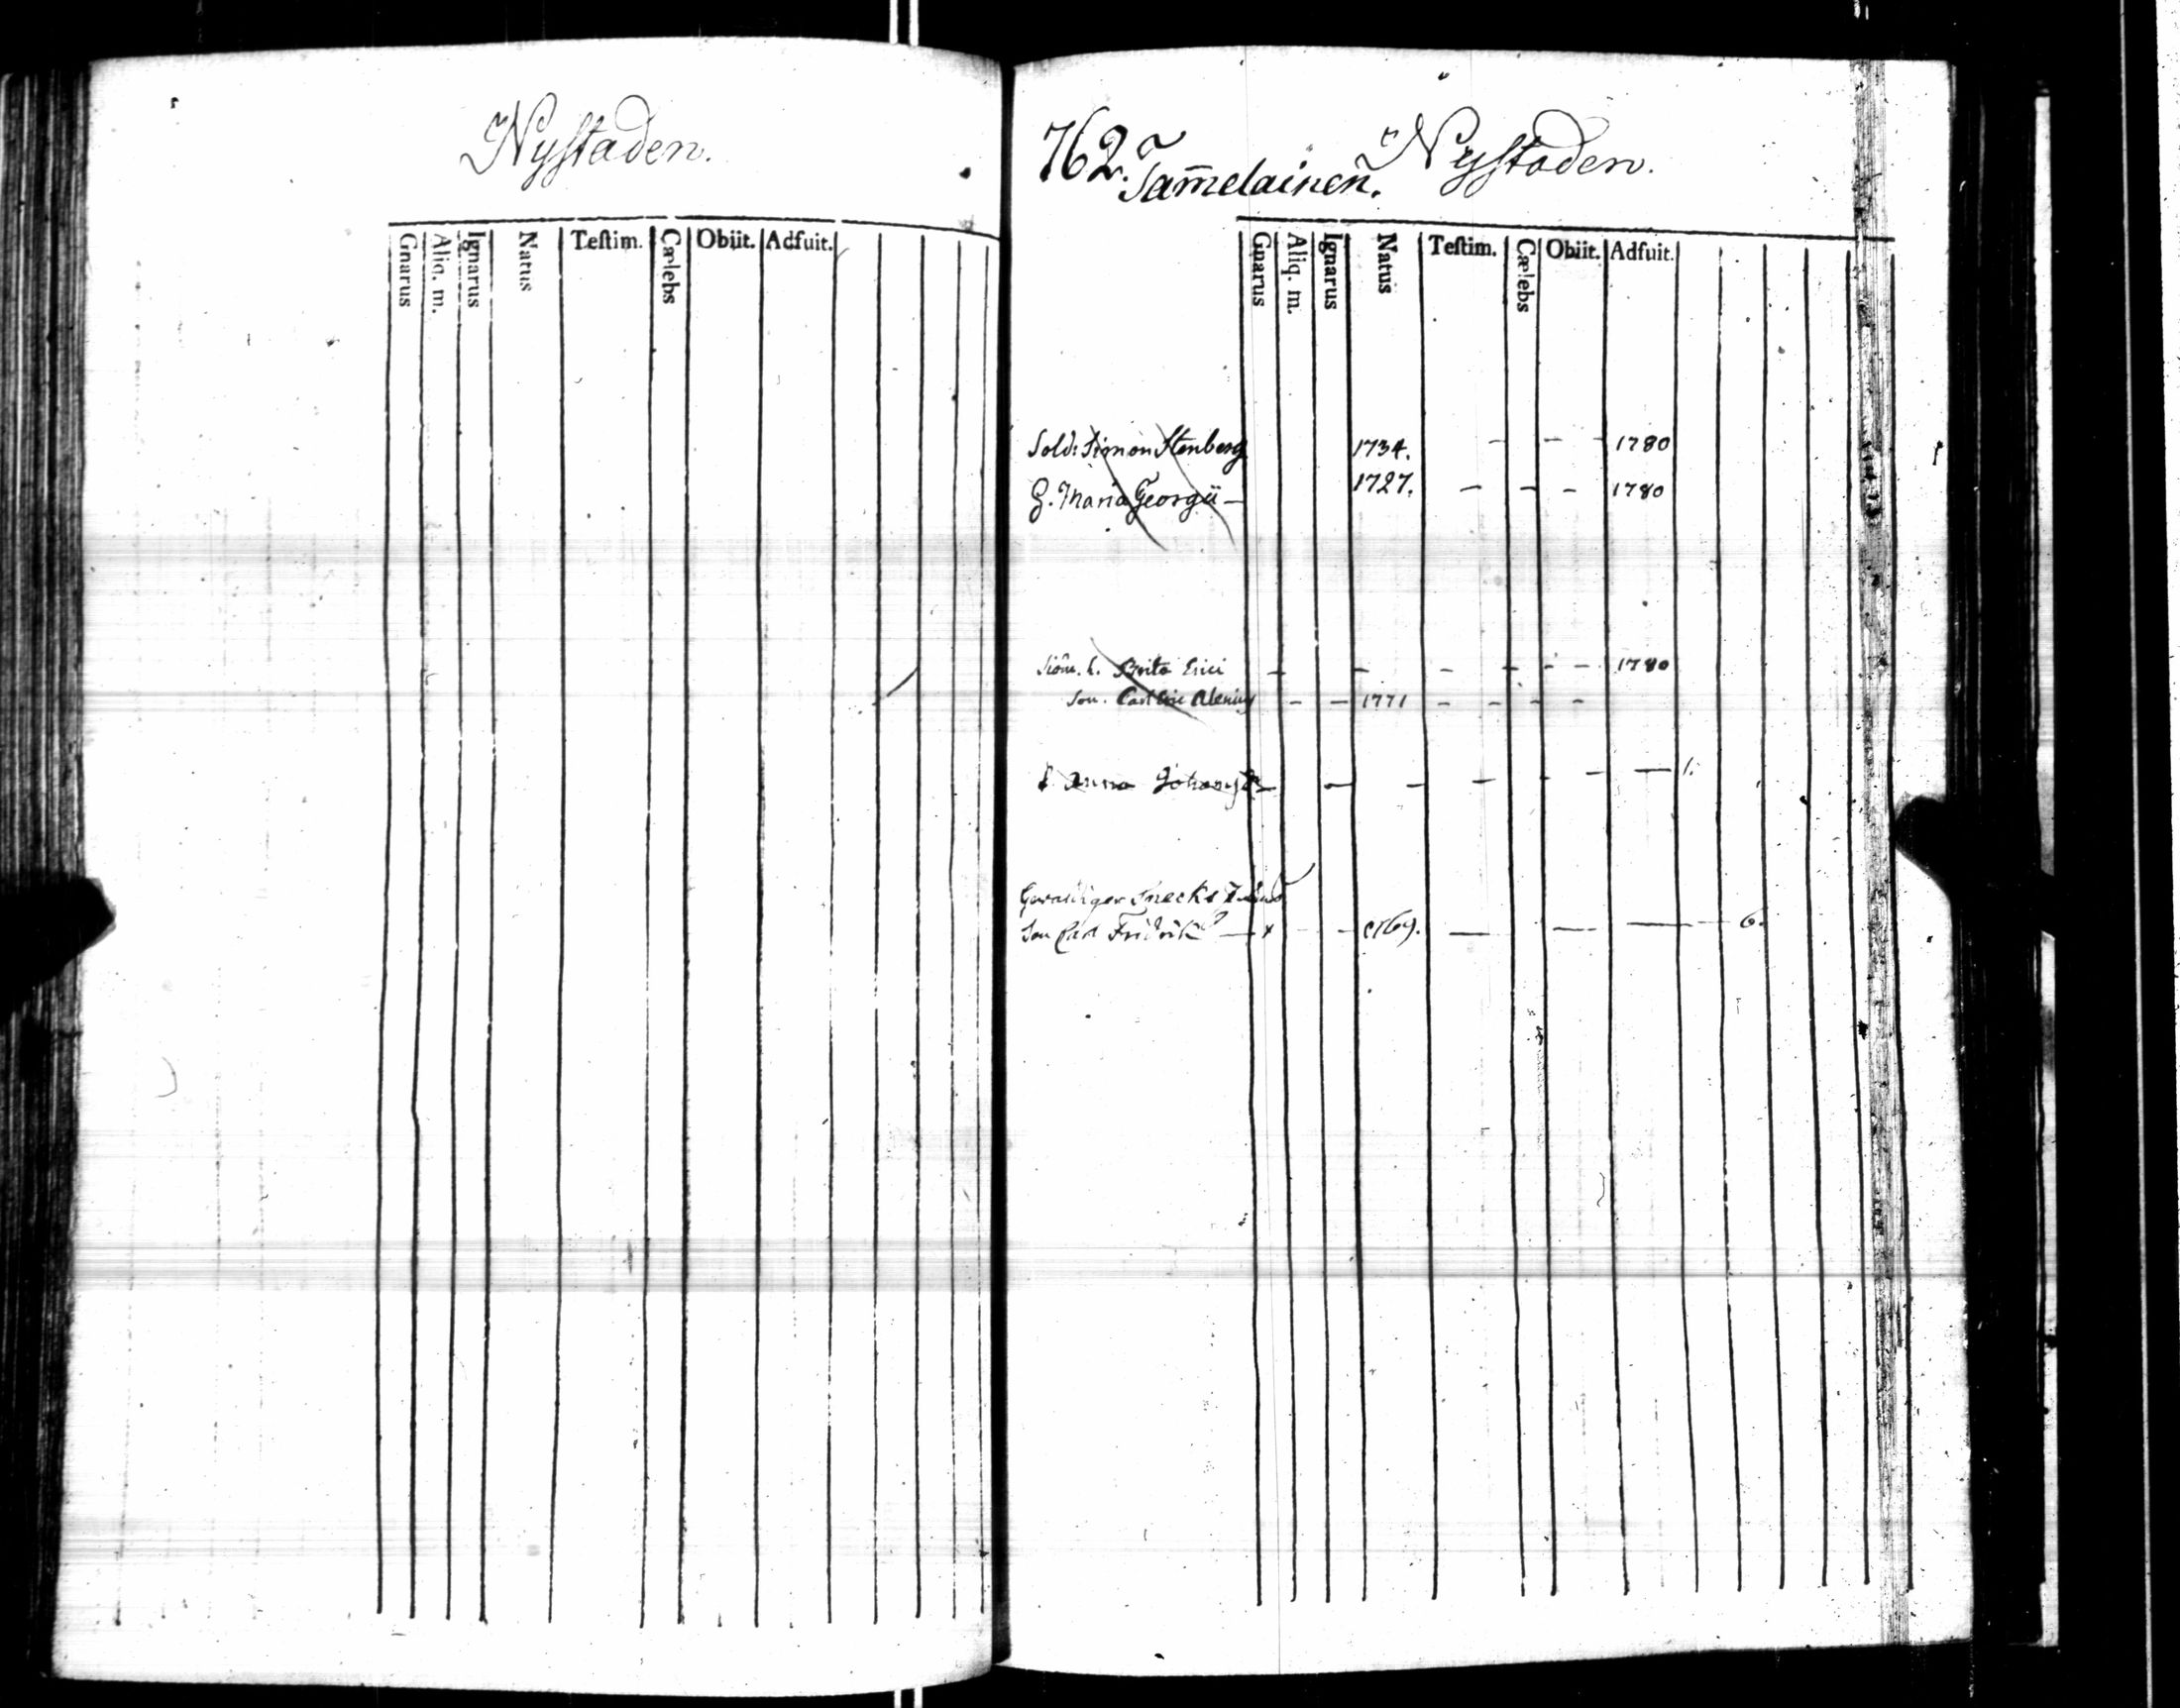 Nystaden.
Gnarus Aliq. m. Ignarus Natus Testim. Cælebs Obiit. Adfuit.
762. Nystaden.
Sam̄elainen.
Gnarus Aliq. m. Ignarus Natus Testim. Cælebs Obiit. Adfuit.
Sold: Simon Stenberg 1734. - - - 1780
H. Maria Georgii - 1727. - - - 1780
h. Brita Erici - - - - - - 1780
Son. Carl Eric Alenius - - 1771 - - - -
Anna - - - - - - - 1.
Son Carl Fridrik - x - 1769. - - - 6.